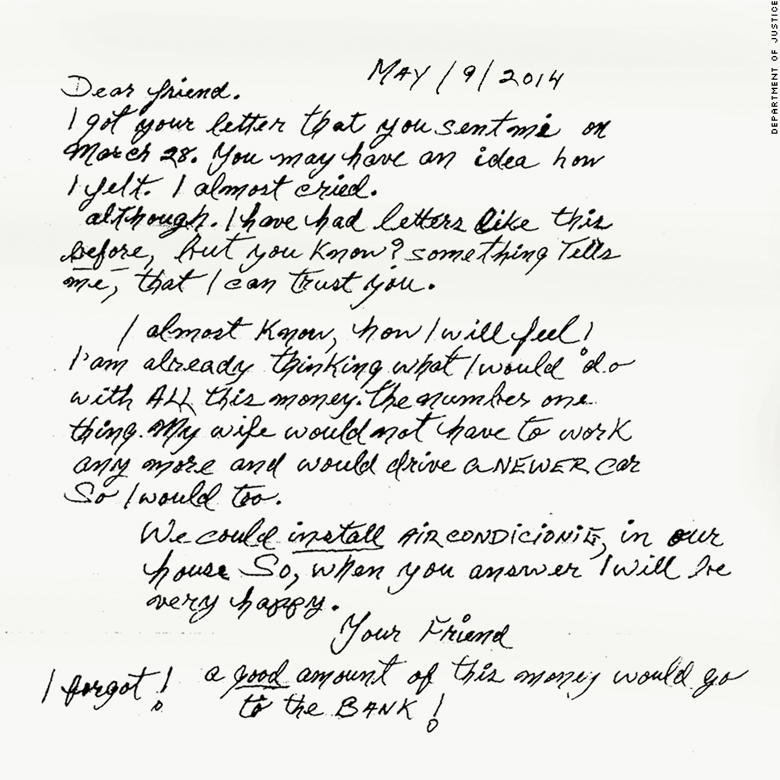 DEPARTMENT OF JUSTICE
MAY/9/2014
Dear friend.
I got your letter that you sent me on
March 28. You may have an idea how
I felt. I almost cried.
although. I have had letters like this
before, but you know? something Tells
me, that I can trust you.
I almost know, how I will feel!
I'am already thinking what I would do
with ALL this money. the number one
thing. My wife would not have to work
any more and would drive a NEWER car
So I would too.
We could install AIRCONDICIONIG, in our
house So, when you answer I will be
very happy.
Your Friend
I forgot! a good amount of this money would go
to the BANK!